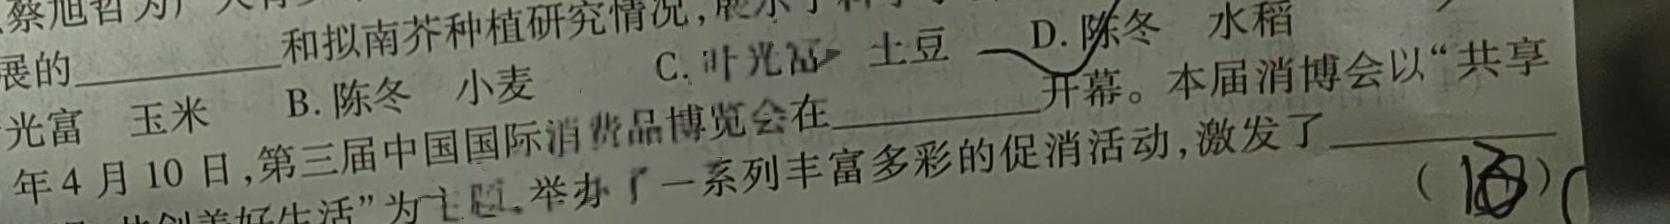 蔡旭哲为广大青
展的__________和拟南芥种植研究情况,展示了科学
光富 玉米 B. 陈冬 小麦 C. 叶光富 土豆 D. 陈冬 水稻
年4月10日,第三届中国国际消费品博览会在__________开幕。本届消博会以“共享
共创美好生活”为主题,举办了一系列丰富多彩的促消活动,激发了__________
( )